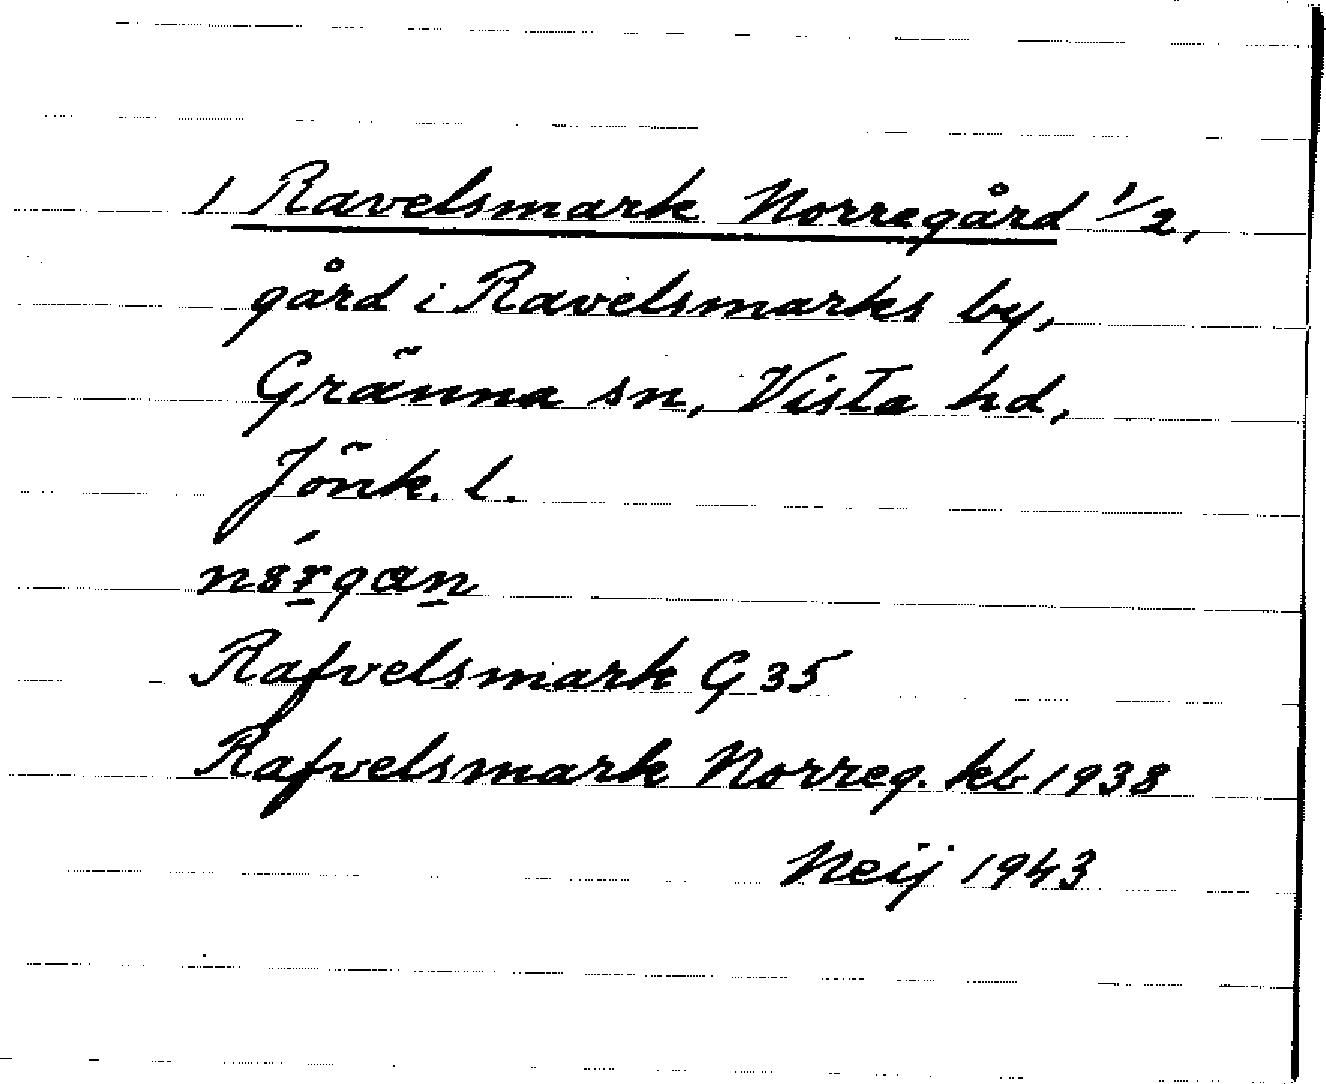 1 Ravelsmark Norregård 1/2,
gård i Ravelsmarks by,
Gränna sn, Vista hd,
Jönk. l.
Rafvelsmark G 35
Rafvelsmark Norreg. kb 1938
Neij 1943